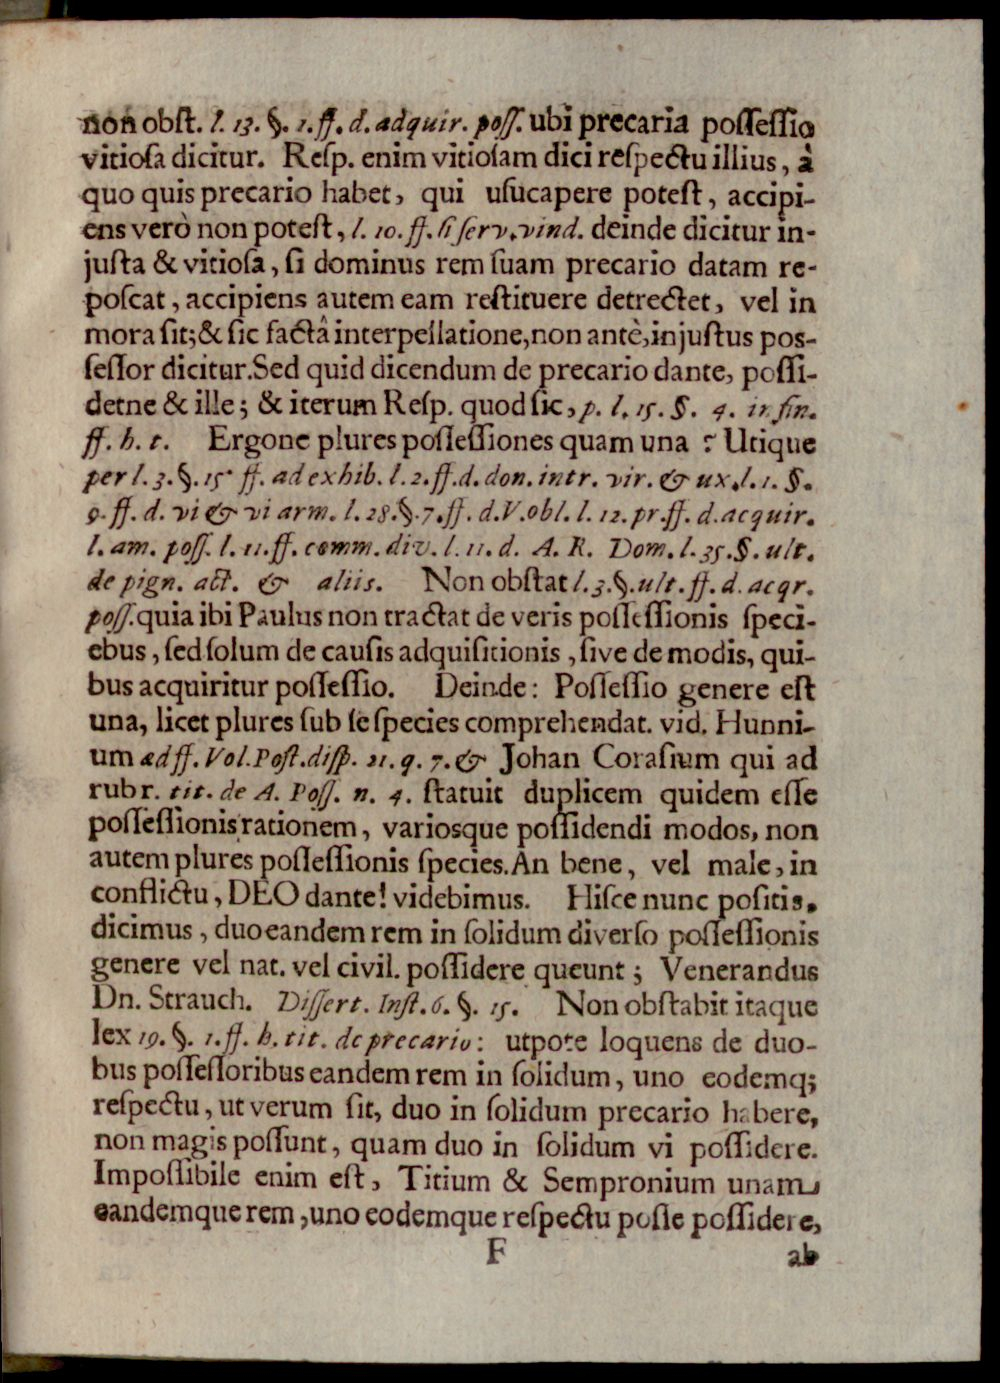 non obſt. l. 13. §. 1. ff. d. adquir. poſſ. ubi precaria poſſeſſio
vitioſa dicitur. Reſp. enim vitioſam dici reſpectu illius, à
quo quis precario habet, qui uſucapere poteſt, accipi-
ens verò non poteſt, l. 10. ff. ſi ſerv. vind. deinde dicitur in-
juſta & vitioſa, ſi dominus rem ſuam precario datam re-
poſcat, accipiens autem eam reſtituere detrectet, vel in
mora ſit; & ſic factâ interpellatione, non antè, injuſtus poſ-
ſeſſor dicitur. Sed quid dicendum de precario dante, poſſi-
detne & ille; & iterum Reſp. quod ſic, p. l. 15. §. 4. in fin.
ff. h. t. Ergone plures poſſeſſiones quam una? Utique
per l. 3. §. 15. ff. ad exhib. l. 2. ff. d. don. intr. vir. & ux. l. 1. §.
9. ff. d. vi & vi arm. l. 28. §. 7. ff. d. V. obl. l. 12. pr. ff. d. acquir.
l. am. poſſ. l. 11. ff. comm. div. l. 11. d. A. R. Dom. l. 35. §. ult.
de pign. act. & aliis. Non obſtat l. 3. §. ult. ff. d. acqr.
poſſ. quia ibi Paulus non tractat de veris poſſeſſionis ſpeci-
ebus, ſed ſolum de cauſis adquiſitionis, ſive de modis, qui-
bus acquiritur poſſeſſio. Deinde: Poſſeſſio genere eſt
una, licet plures ſub ſe ſpecies comprehendat. vid. Hunni-
um ad ff. Vol. Poſt. diſp. 21. q. 7. & Johan Coraſium qui ad
rubr. tit. de A. Poſſ. n. 4. ſtatuit duplicem quidem eſſe
poſſeſſionis rationem, variosque poſſidendi modos, non
autem plures poſſeſſionis ſpecies. An bene, vel male, in
conflictu, DEO dante! videbimus. Hiſce nunc poſitis.
dicimus, duo eandem rem in ſolidum diverſo poſſeſſionis
genere vel nat. vel civil. poſſidere queunt; Venerandus
Dn. Strauch. Diſſert. Inſt. 6. §. 15. Non obſtabit itaque
lex 19. §. 1. ff. h. tit. de precario: utpote loquens de duo-
bus poſſeſſoribus eandem rem in ſolidum, uno eodemq;
reſpectu, ut verum ſit, duo in ſolidum precario habere,
non magis poſſunt, quam duo in ſolidum vi poſſidere.
Impoſſibile enim eſt, Titium & Sempronium unam
eandemque rem, uno eodemque reſpectu poſſe poſſidere,
F ab